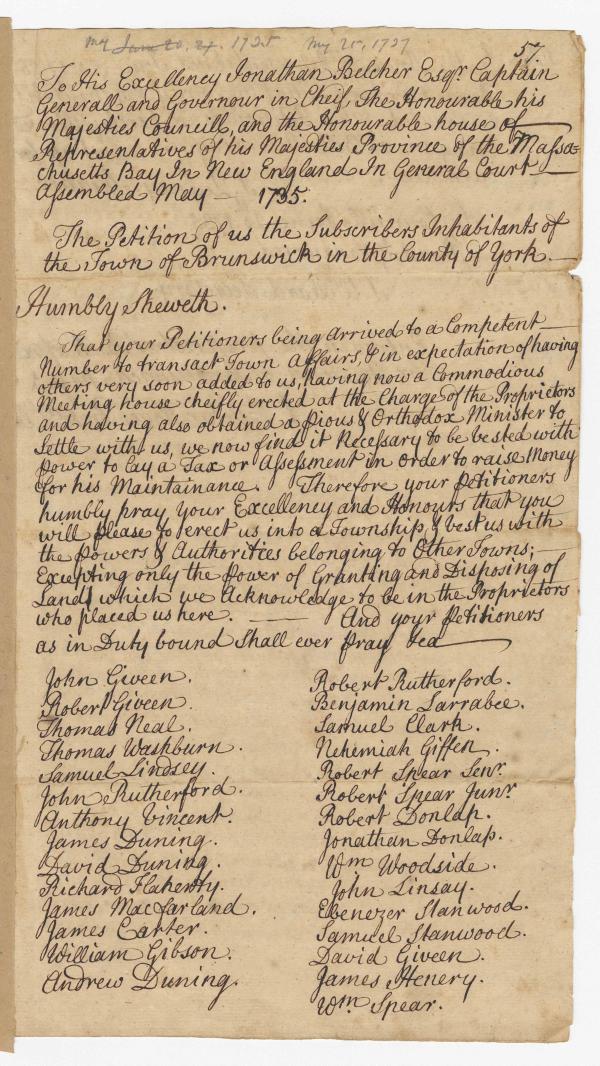 my June 20. 21. 1735 My 25, 1737
57
To His Excellency Jonathan Belcher Esqr. Captain
Generall and Governour in Cheif, The Honourable his
Majesties Councill, and the Honourable house of
Representatives of his Majesties Province of the Massa-
chusetts Bay In New England In General Court
Assembled May — 1735.
The Petition of us the Subscribers Inhabitants of
the Town of Brunswick in the County of York.
Humbly Sheweth.
That your Petitioners being arrived to a Competent
Number to transact Town Affairs, & in expectation of having
others very soon added to us, having now a Commodious
Meeting house cheifly erected at the Charge of the Proprietors
and having also obtained a Pious & Orthodox Minister to
Settle with us, we now find it Necessary to be vested with
power to lay a Tax or Assessment in order to raise Money
for his Maintainance. Therefore your Petitioners
humbly pray your Excellency and Honours that you
will please to erect us into a Township, & vest us with
the Powers & Authorities belonging to Other Towns;
Excepting only the Power of Granting and Disposing of
Land, which we Acknowledge to be in the Proprietors
who placed us here. — And your Petitioners
as in Duty bound Shall ever pray &ca
John Giveen.
Robert Giveen.
Thomas Neal.
Thomas Washburn.
Samuel Lindsey.
John Rutherford.
Anthony Vincent.
James Duning.
David Duning.
Richard Flahenty.
James MacFarland.
James Carter.
William Gibson.
Andrew Duning.
Robert Rutherford.
Benjamin Larrabee.
Samuel Clark.
Nehemiah Giffen.
Robert Spear Senr.
Robert Spear Junr.
Robert Donlap.
Jonathan Donlap.
Wm Woodside.
John Linsay.
Ebenezer Stanwood.
Samuel Stanwood.
David Giveen.
James Henery.
Wm. Spear.